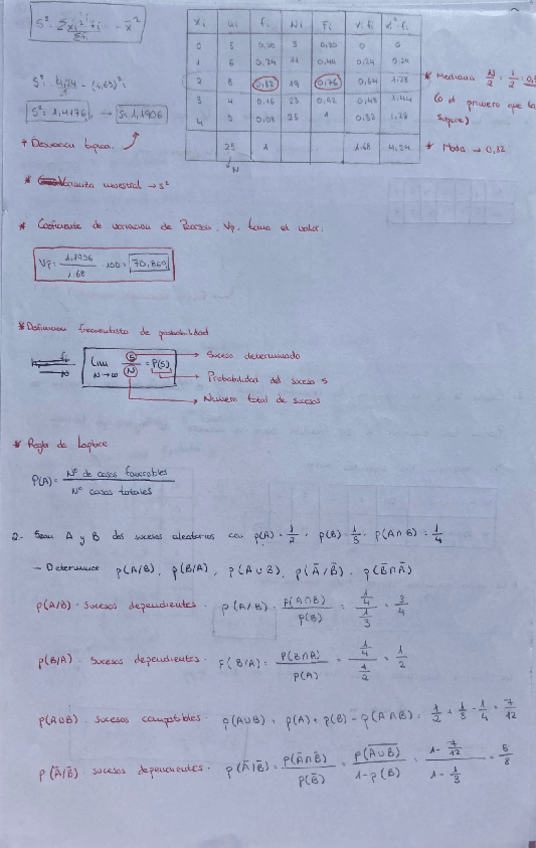 S² = Σxi² fi / Σfi - x̄²
S² = 4,24 - (1,68)² =
S² = 1,4176 → S = 1,1906
* Desviación típica.
xi ni fi Ni Fi xi·fi xi²·fi
0 5 0,20 5 0,20 0 0
1 6 0,24 11 0,44 0,24 0,24
2 8 0,32 19 0,76 0,64 1,28
3 4 0,16 23 0,92 0,48 1,44
4 2 0,08 25 1 0,32 1,28
25 1 1.68 4,24
N
* Mediana N/2 = 1/2 =
(o el primero que la
supere)
* Moda → 0,32
* Varianza muestral → s²
* Coeficiente de variación de Pearson, Vp, toma el valor:
Vp = 1,1906 / 1.68 · 100 =
* Definición frecuentista de probabilidad
Lim N→∞ S/N = P(S)
→ Suceso determinado
→ Probabilidad del suceso S
→ Número total de sucesos
* Regla de Laplace
P(A) = Nº de casos favorables / Nº casos totales
2- Sean A y B dos sucesos aleatorios con p(A) = 1/2, p(B) = 1/3, p(A∩B) = 1/4
- Determinar p(A/B), p(B/A), p(A∪B), p(Ā/B̄), p(B̄∩Ā)
p(A/B) · sucesos dependientes · p(A/B) = P(A∩B) / p(B) = 1/4 / 1/3 = 3/4
p(B/A) · sucesos dependientes · P(B/A) = P(B∩A) / p(A) = 1/4 / 1/2 = 1/2
p(A∪B) · sucesos compatibles · p(A∪B) = p(A) + p(B) - p(A∩B) = 1/2 + 1/3 - 1/4 = 7/12
p(Ā/B̄) · sucesos dependientes · p(Ā/B̄) = p(Ā∩B̄) / p(B̄) = p(A∪B)‾ / 1-p(B) = 1 - 7/12 / 1 - 1/3 = 5/8